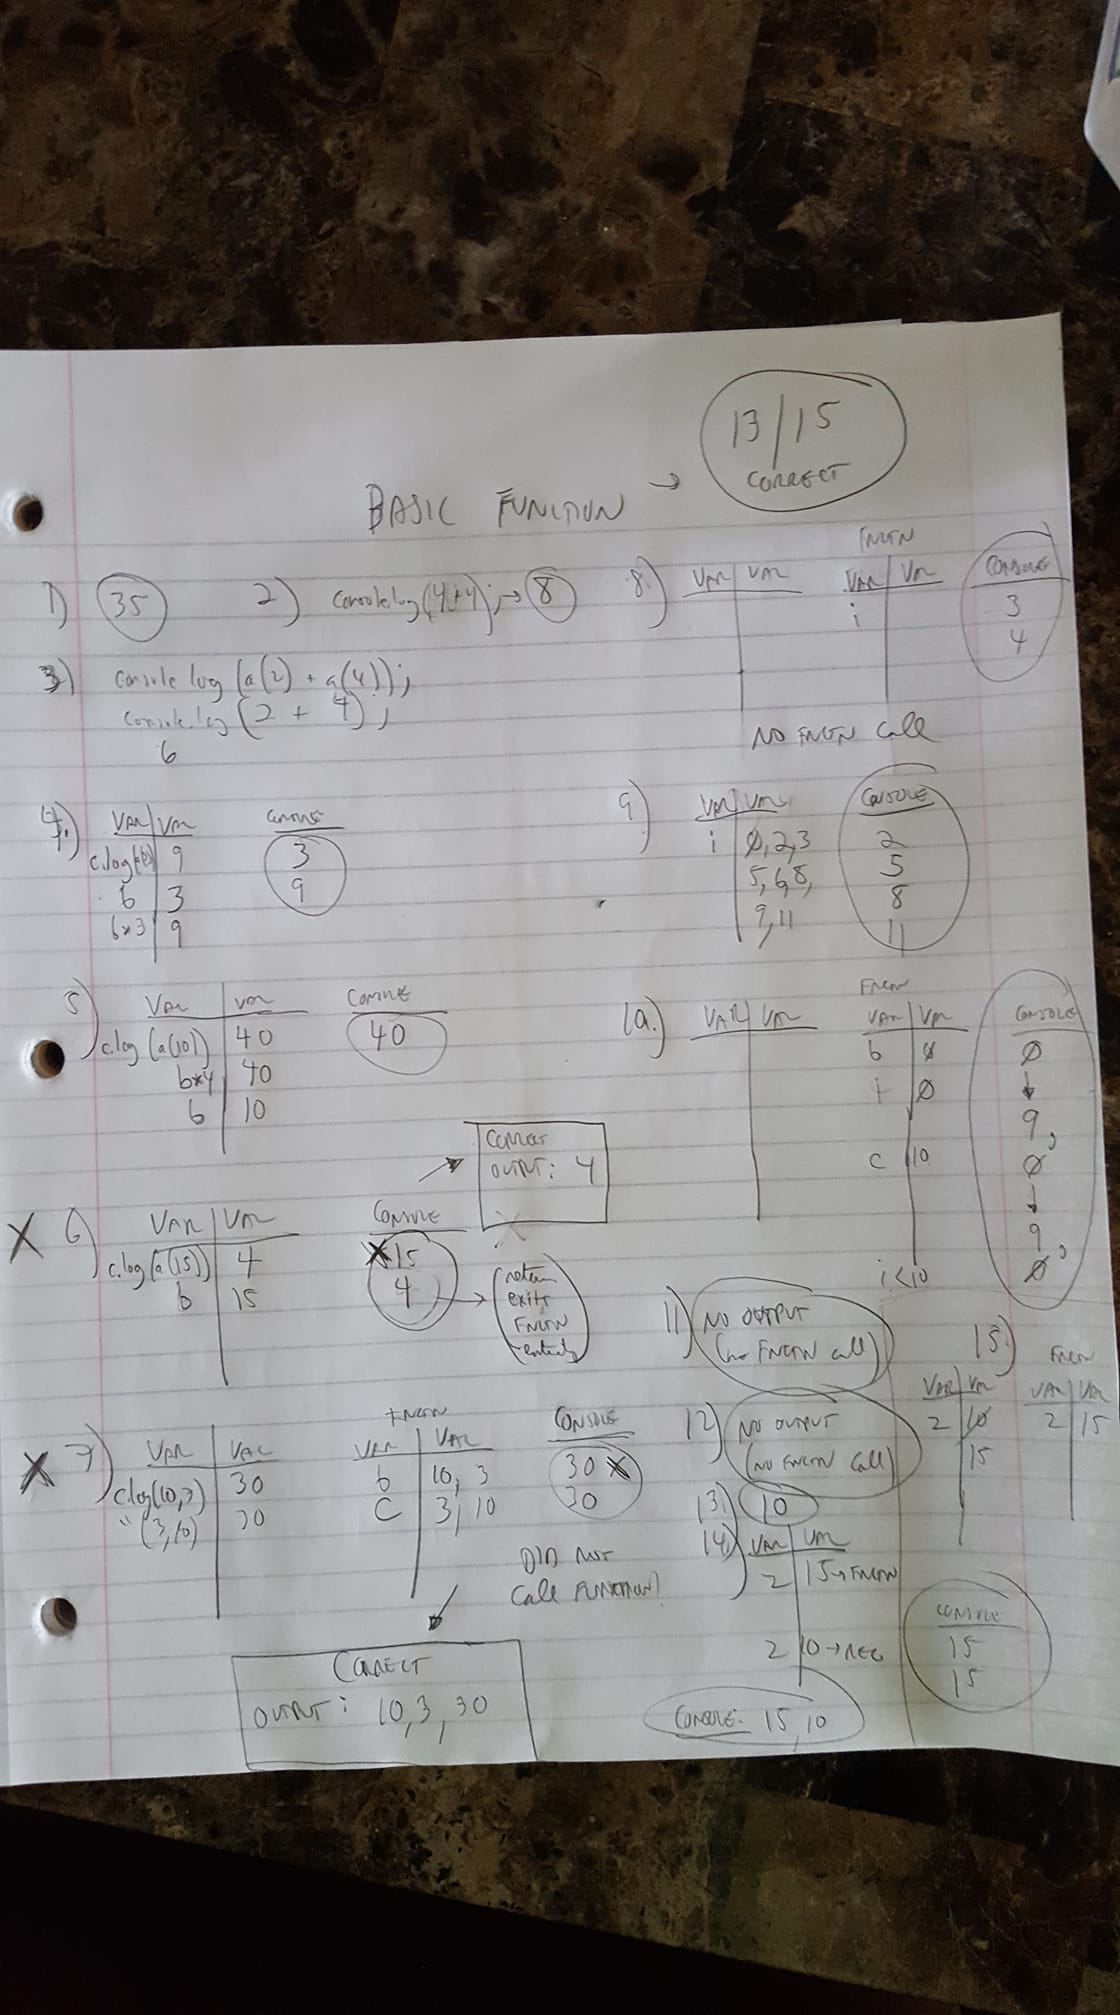 13/15
CORRECT
BASIC FUNCTION →
1) 35
2) console.log(4+4); → 8
3) console log (a(2) + a(4));
console.log (2 + 4);
6
4.) VAR | VAL
c.log | 9
b | 3
b*3 | 9
CONSOLE
3
9
5) VAR | VAL
c.log (a(10)) | 40
b*4 | 40
b | 10
CONSOLE
40
CORRECT
OUTPUT: 4
X 6) VAR | VAL
c.log(a(15)) | 4
b | 15
CONSOLE
X 15
4 →
return
exits
FNCTN
entirely
X 7) VAR | VAL
c.log(10,3) | 30
" (3,10) | 30
FNCTN
VAR | VAL
b | 10, 3
C | 3, 10
CONSOLE
30 X
30
DID NOT
Call FUNCTION!
CORRECT
OUTPUT: 10, 3, 30
8.) VAR | VAL
FNCTN
VAR | VAL
i
CONSOLE
3
4
NO FNCTN call
9) VAR | VAL
i | 0, 2, 3
5, 6, 8,
9, 11
CONSOLE
2
5
8
11
10.) VAR | VAL
FNCTN
VAR | VAL
b | 0
i | 0
C | 10
i<10
CONSOLE
0
↓
9,
0
↓
9,
0
11) NO OUTPUT
(no FNCTN call)
12) NO OUTPUT
(NO FNCTN Call)
13.) 10
14.) VAR | VAL
2 | 15 → FNCTN
2 | 10 → REG
CONSOLE: 15, 10
15.)
VAR | VAL
2 | 10
15
FNCTN
VAR | VAL
2 | 15
CONSOLE
15
15